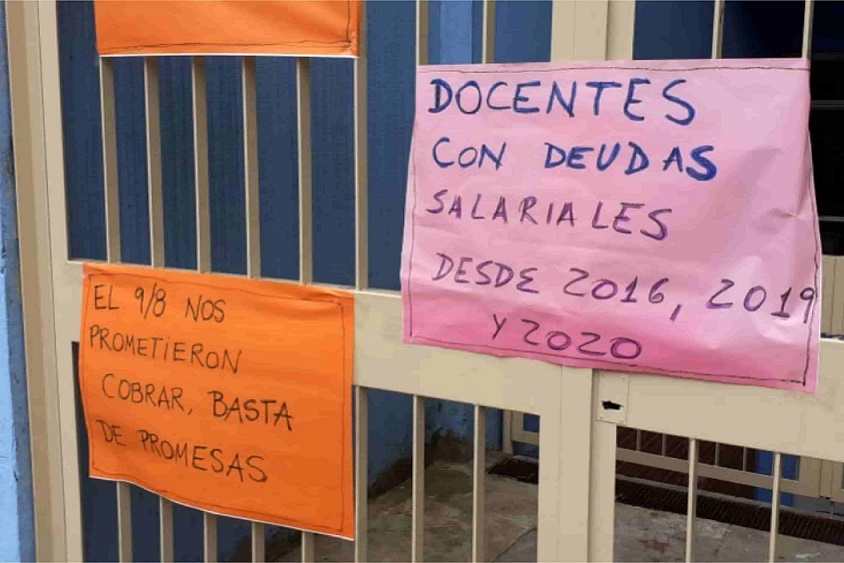 EL 9/8 NOS
PROMETIERON
COBRAR, BASTA
DE PROMESAS
DOCENTES
CON DEUDAS
SALARIALES
DESDE 2016, 2019
Y 2020